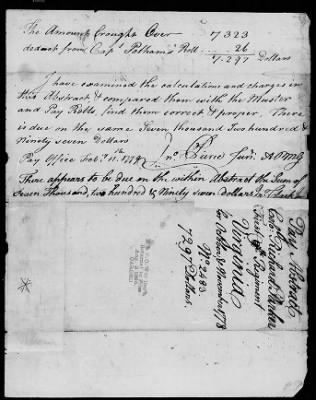 The Amount brought Over 7323
deduct from Capt Pelham's Roll 26
7297 Dollars
I have examined the calculations and charges in
this Abstract & compared them with the Muster
and Pay Rolls find them correct & proper. There
is due on the same Seven thousand Two hundred &
Ninety seven Dollars
Pay Office Feby 11th 1779
There appears to be due on the within Abstract the Sum of
Seven Thousand, two hundred & Ninety seven Dollars
Pay Abstract
Col. Richard Parker
First Regiment
Virginia
for October & November 1778
7297 Dollars